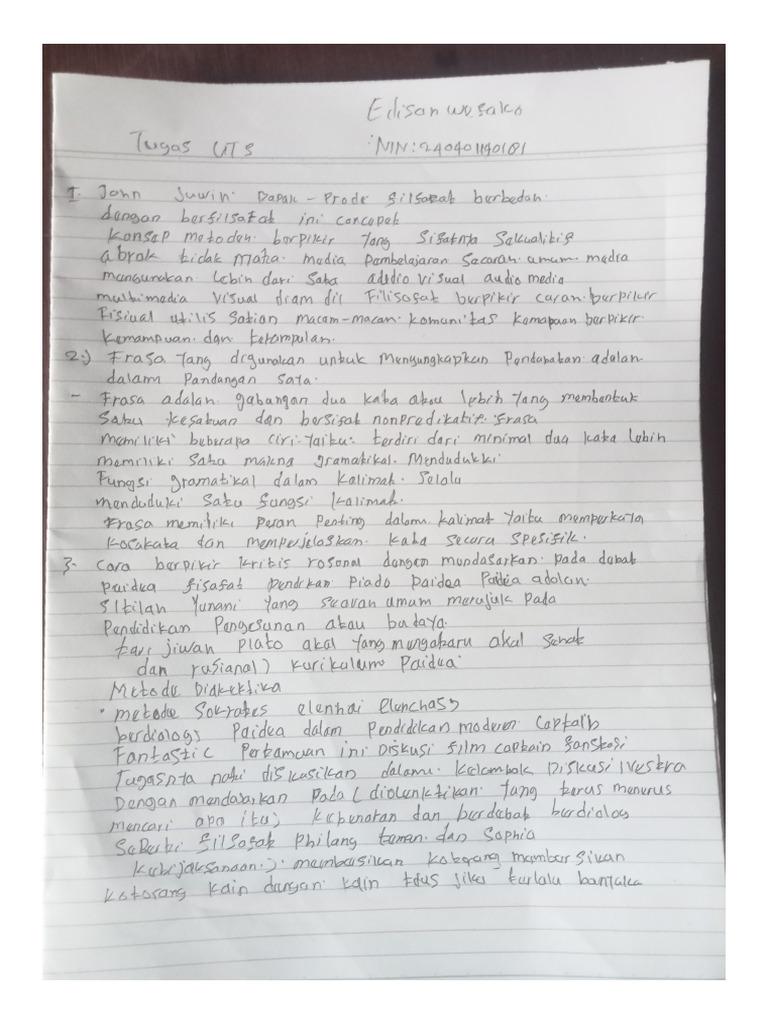 Edisan wesako
Tugas UTS
NIN: 240401140181
1. John Juwin. Dapak - Prode filsafat berbedan.
dengan berfilsafat ini concepet
Konsep metoden. berpikir yang sifatnya Sekualitif
abrok tidak Maha. media pembelajaran secaran. umum. media
mengunakan. lebin dari Satu adidio visual audio media
multimedia visual dram dll Filisofat berpikir caran. berpikir
Fisiual utilis Satian macam-macan. komunitas kemapaan berpikir.
Kemampuan. dan keterampulan.
2.) Frasa yang digunakan untuk Mengungkapkan Pendapatan adalan.
dalam Pandangan Saya.
- Frasa adalan. gabangan dua kata atau lebih yang membentuk
Satu kesatuan dan bersifat nonpredikatif. Frasa
memiliki beberapa ciri. yaitu: terdiri dari minimal dua kata lebih
memiliki Satu makna gramatikal. Menduduki
Fungsi gramatikal dalam kalimat. Selalu
menduduki Satu fungsi kalimat.
Frasa memiliki peran penting dalam kalimat yaitu memperkaya
kosakata dan memperjelaskan. kata secara spesifik.
3. Cara berpikir kritis rosonal dengan mendasarkan. pada debat
paidea fisafat pendikan Plado paidea Paidia adalan.
Sitilan Yunani yang secaran umum merujuk pada
Pendidikan Pengesunan atau budaya.
tari jiwan Plato akal yang mengataru akal Sehat
dan rasianal) kurikulum Paidea.
Metode Dialektika
• metode Sokrates elenhai elenchas)
berdialogs Paidea dalam Pendidikan moderen Captain
Fantastic Pertamuan ini Diskusi film captain
Tugasnta nati diskusikan dalam. kelombok Diskusi
Dengan mendasarkan pada ( yang terus menerus
mencari apa itu) kebenakan dan berdebat berdialog
Seberti filsofat philang teman. dan Sophia
kebijaksanaan.). membersikan kotorang membersikan
kotorang kain dengan. kain jika terlalu